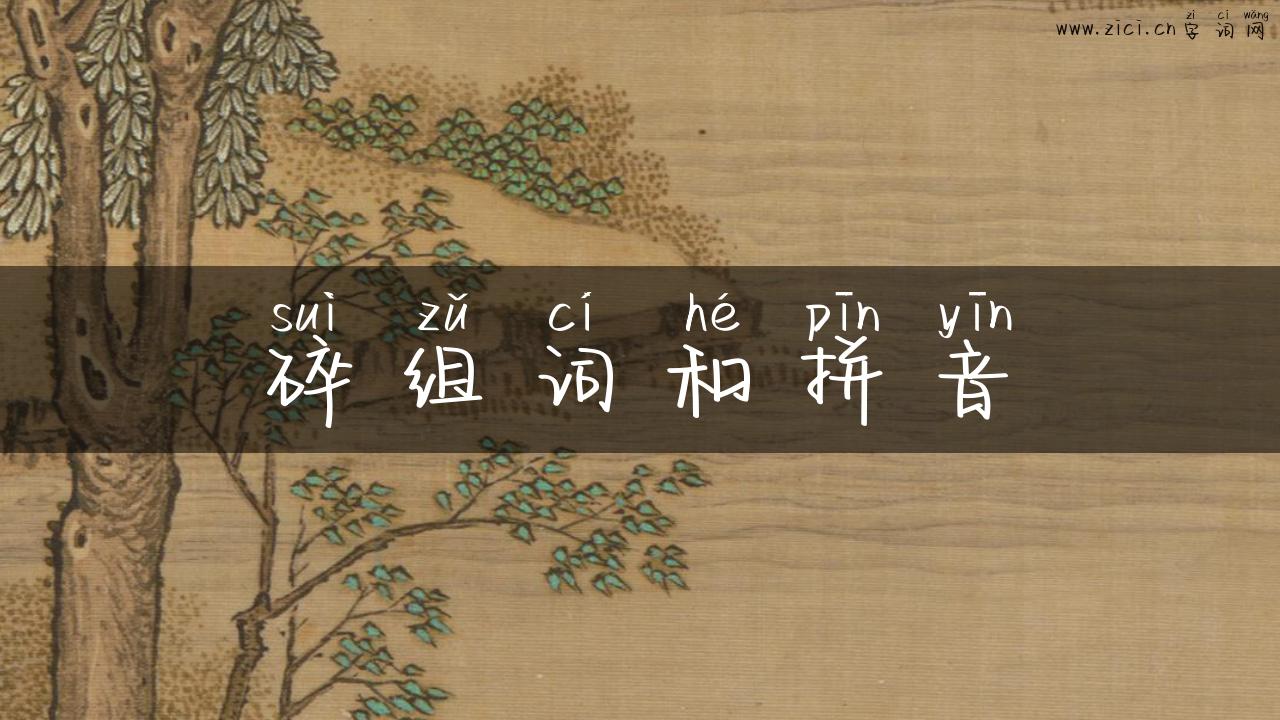 zì cí wǎng
www.zici.cn 字词网
suì zǔ cí hé pīn yīn
碎组词和拼音